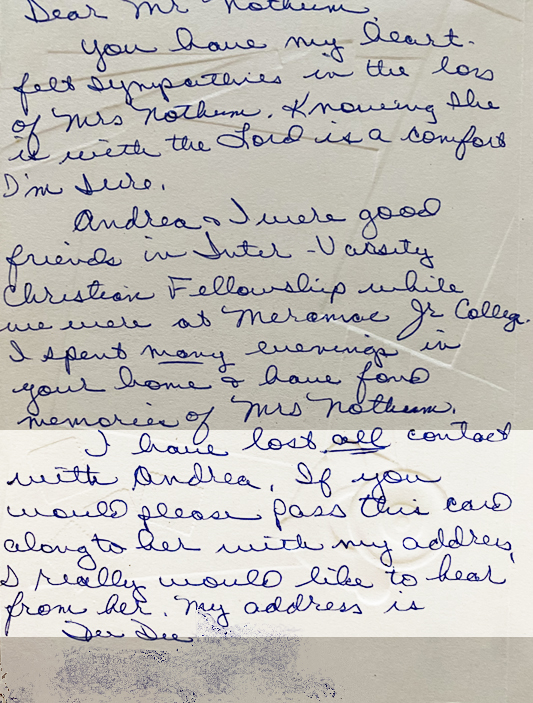 Dear Mr Nothum
You have my heart-
felt sympathies in the loss
of Mrs Nothum. Knowing She
is with the Lord is a comfort
I'm sure.
Andrea & I were good
friends in Inter-Varsity
Christian Fellowship while
we were at Meramac Jr College.
I spent many evenings in
your home & have fond
memories of Mrs Nothum.
I have lost all contact
with Andrea. If you
would please pass this card
along to her with my address,
I really would like to hear
from her. My address is
Dee Dee